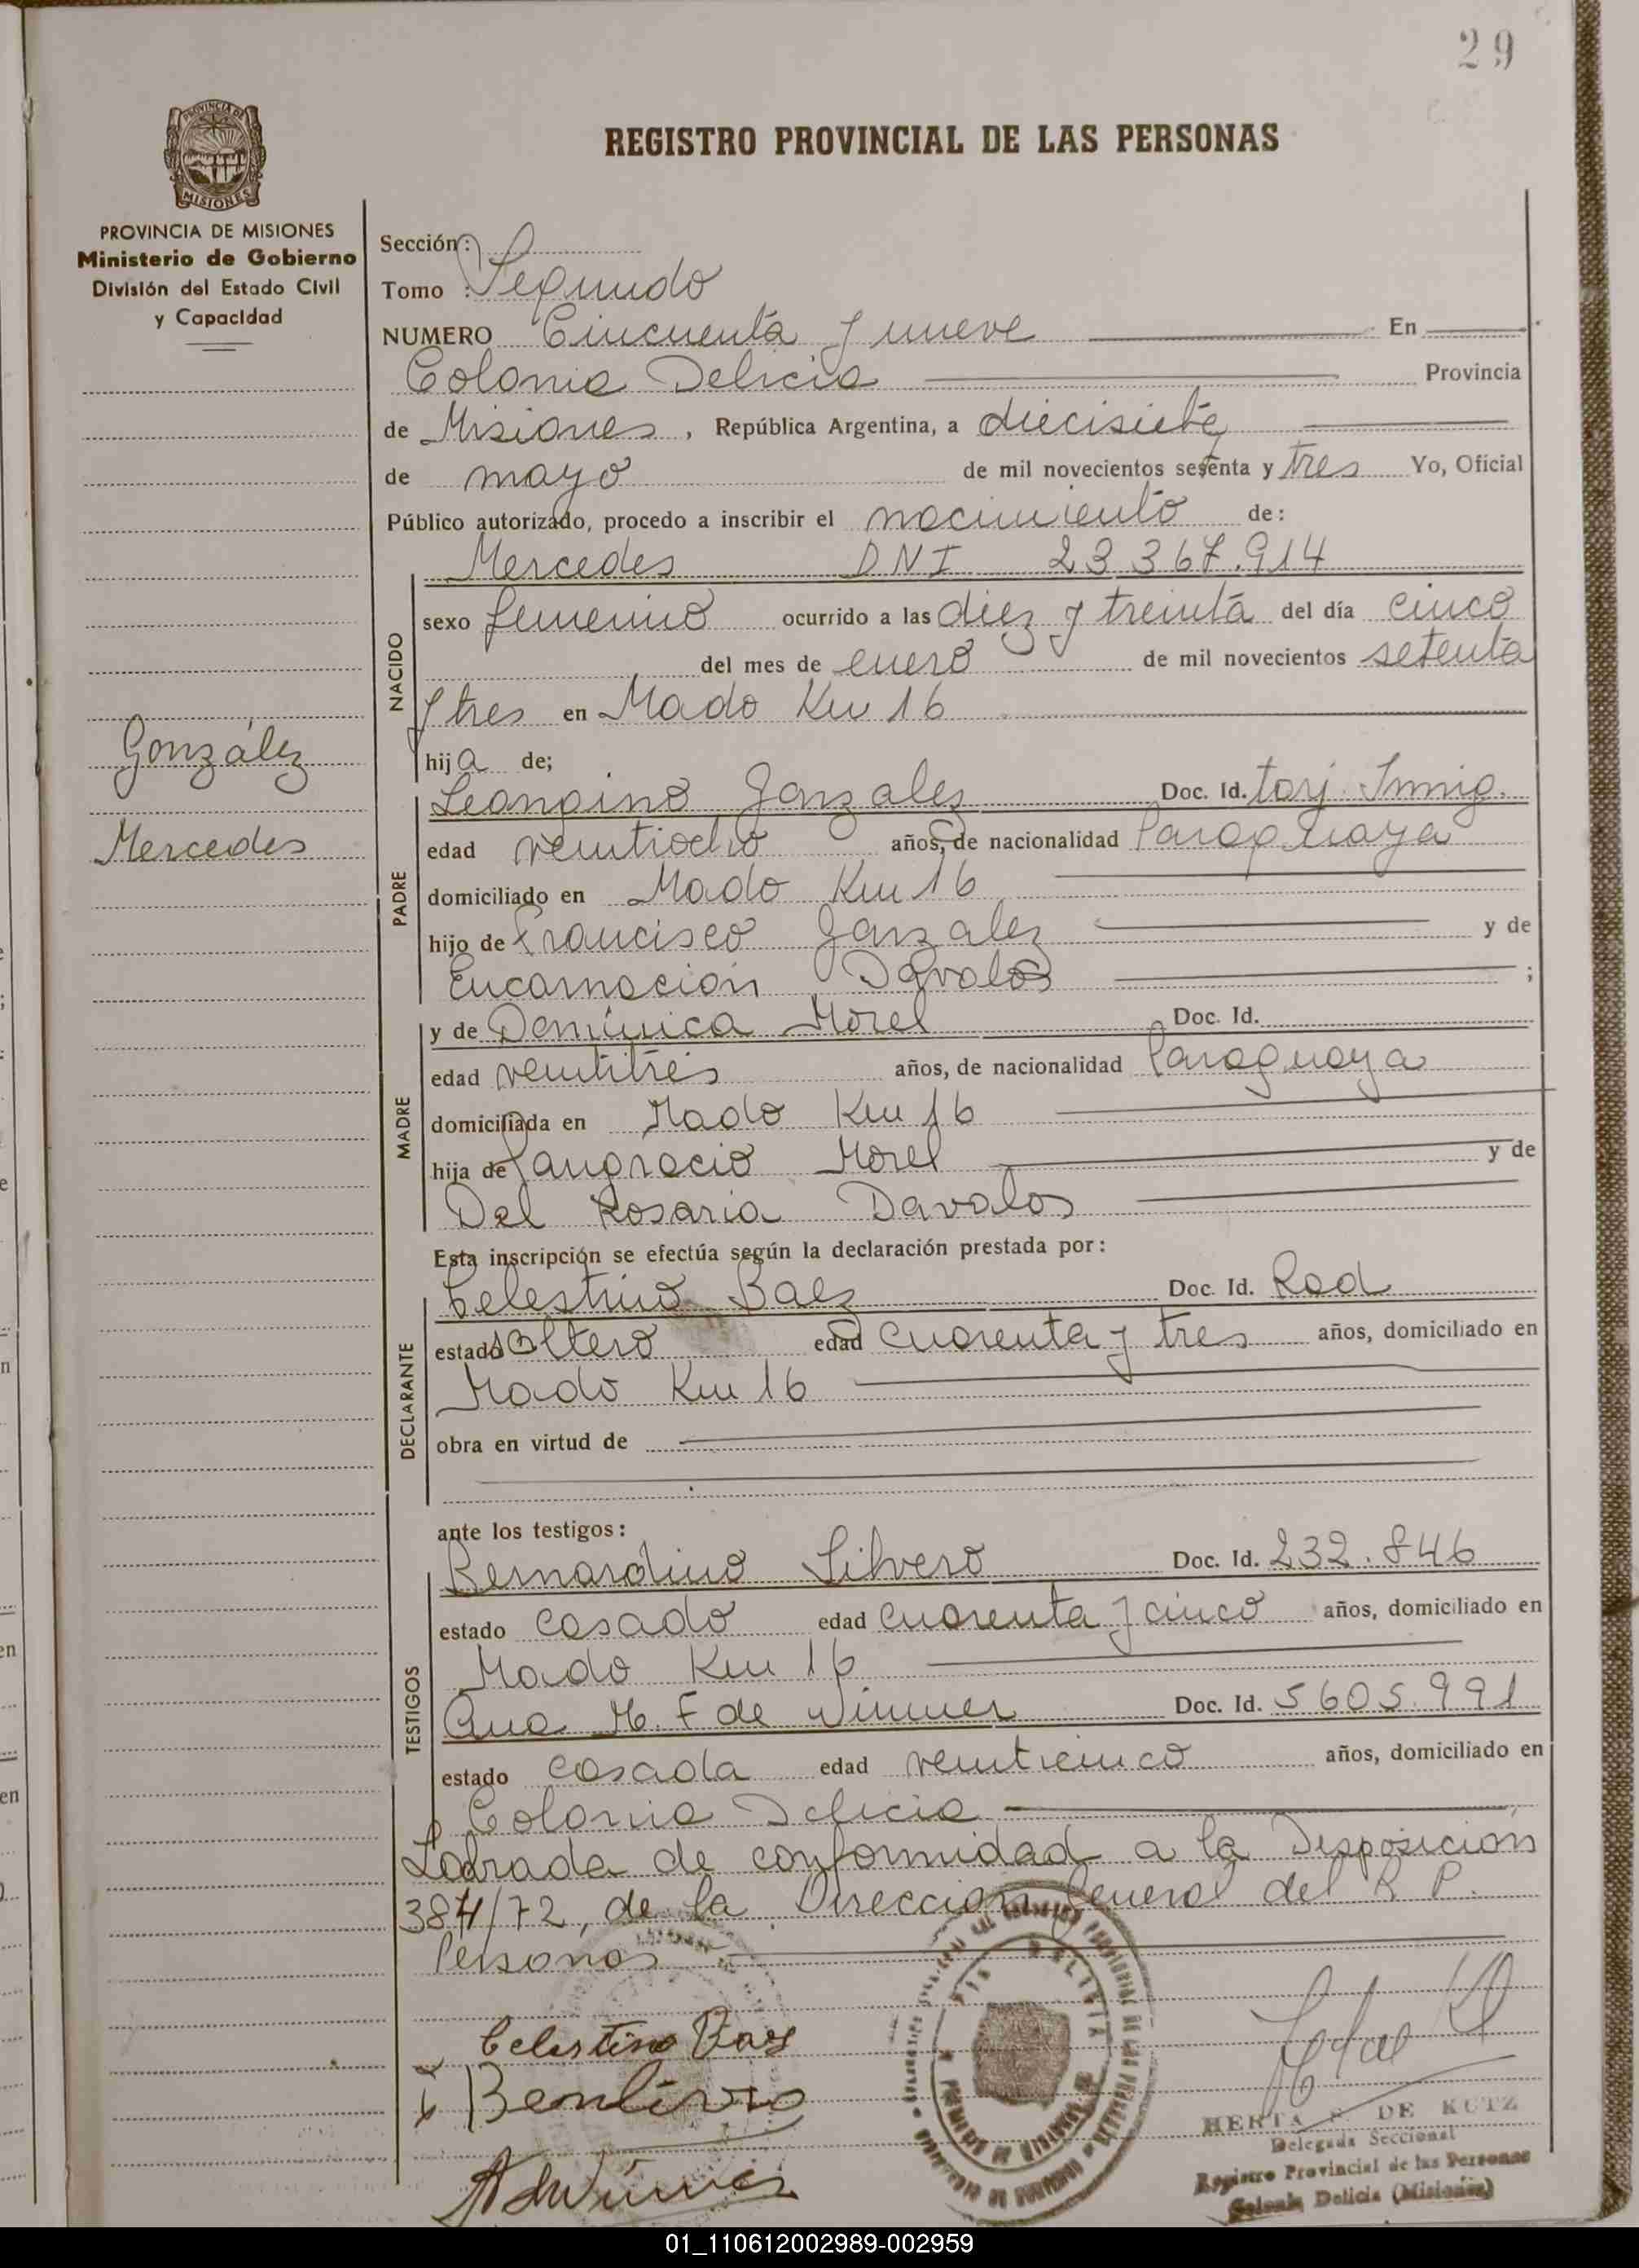 29
MISIONES
REGISTRO PROVINCIAL DE LAS PERSONAS
PROVINCIA DE MISIONES
Ministerio de Gobierno
División del Estado Civil
y Capacidad
González
Mercedes
Sección:
Tomo : Segundo
NUMERO Cincuenta y nueve En
Colonia Delicia Provincia
de Misiones, República Argentina, a diecisiete
de mayo de mil novecientos setenta y tres Yo, Oficial
Público autorizado, procedo a inscribir el nacimiento de:
Mercedes DNI 23 367.914
NACIDO
sexo femenino ocurrido a las diez y treinta del día cinco
del mes de enero de mil novecientos setenta
y tres en Mado Km 16
hija de;
PADRE
Leongino Gonzalez Doc. Id. tarj. Inmig.
edad veintiocho años, de nacionalidad Paraguaya
domiciliado en Mado Km 16
hijo de Francisco Gonzalez y de
Encarnación Davalos ;
MADRE
y de Dominica Morel Doc. Id.
edad veintitres años, de nacionalidad Paraguaya
domiciliada en Mado Km 16
hija de Pangracio Morel y de
Del Rosario Davalos
Esta inscripción se efectúa según la declaración prestada por:
DECLARANTE
Celestino Baez Doc. Id. Rad
estado soltero edad cuarenta y tres años, domiciliado en
Mado Km 16
obra en virtud de
ante los testigos:
TESTIGOS
Bernardino Silvero Doc. Id. 232.846
estado casado edad cuarenta y cinco años, domiciliado en
Mado Km 16
Ana M. F de Wimmer Doc. Id. 5605.991
estado casada edad veinticinco años, domiciliado en
Colonia Delicia
Labrada de conformidad a la Disposición
384/72, de la Dirección General del R P.
Personas
Celestino Baez
HERTA DE KUTZ
Delegada Seccional
Registro Provincial de las Personas
Colonia Delicia (Misiones)
01_110612002989-002959